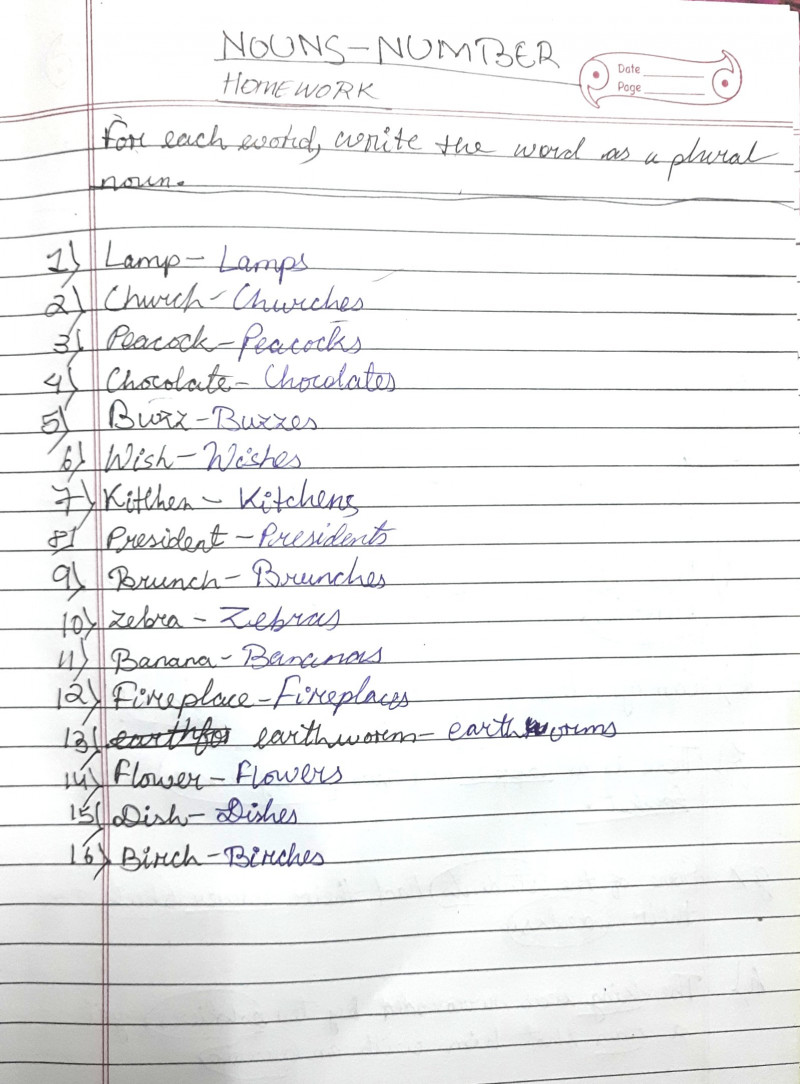 NOUNS-NUMBER
HOMEWORK
Date
Page
For each word, write the word as a plural
noun.
1) Lamp - Lamps
2) Church - Churches
3) Peacock - Peacocks
4) Chocolate - Chocolates
5) Buzz - Buzzes
6) Wish - Wishes
7) Kitchen - Kitchens
8) President - Presidents
9) Brunch - Brunches
10) Zebra - Zebras
11) Banana - Bananas
12) Fireplace - Fireplaces
13) earthworm - earthworms
14) Flower - Flowers
15) Dish - Dishes
16) Birch - Birches